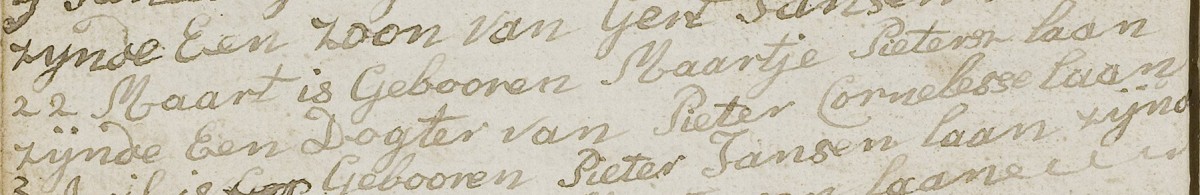 zynde Een zoon van Gert Jansen
22 Maart is Gebooren Maartje Pieters laan
zijnde Een Dogter van Pieter Cornelesse laan
is Gebooren Pieter Jansen laan zijnd
laan